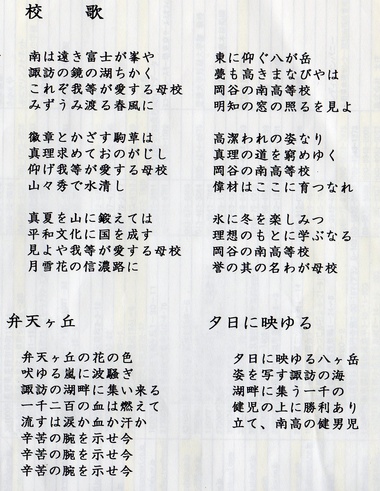 校 歌
南は遠き富士が峯や
諏訪の鏡の湖ちかく
これぞ我等が愛する母校
みずうみ渡る春風に
徽章とかざす駒草は
真理求めておのがじし
仰げ我等が愛する母校
山々秀で水清し
真夏を山に鍛えては
平和文化に国を成す
見よや我等が愛する母校
月雪花の信濃路に
東に仰ぐ八が岳
甍も高きまなびやは
岡谷の南高等校
明知の窓の照るを見よ
高潔われの姿なり
真理の道を窮めゆく
岡谷の南高等校
偉材はここに育つなれ
氷に冬を楽しみつ
理想のもとに学ぶなる
岡谷の南高等校
誉の其の名わが母校
弁天ヶ丘
弁天ヶ丘の花の色
吠ゆる嵐に波騒ぎ
諏訪の湖畔に集い来る
一千二百の血は燃えて
流すは涙か血か汗か
辛苦の腕を示せ今
辛苦の腕を示せ今
辛苦の腕を示せ今
夕日に映ゆる
夕日に映ゆる八ヶ岳
姿を写す諏訪の海
湖畔に集う一千の
健児の上に勝利あり
立て、南高の健男児